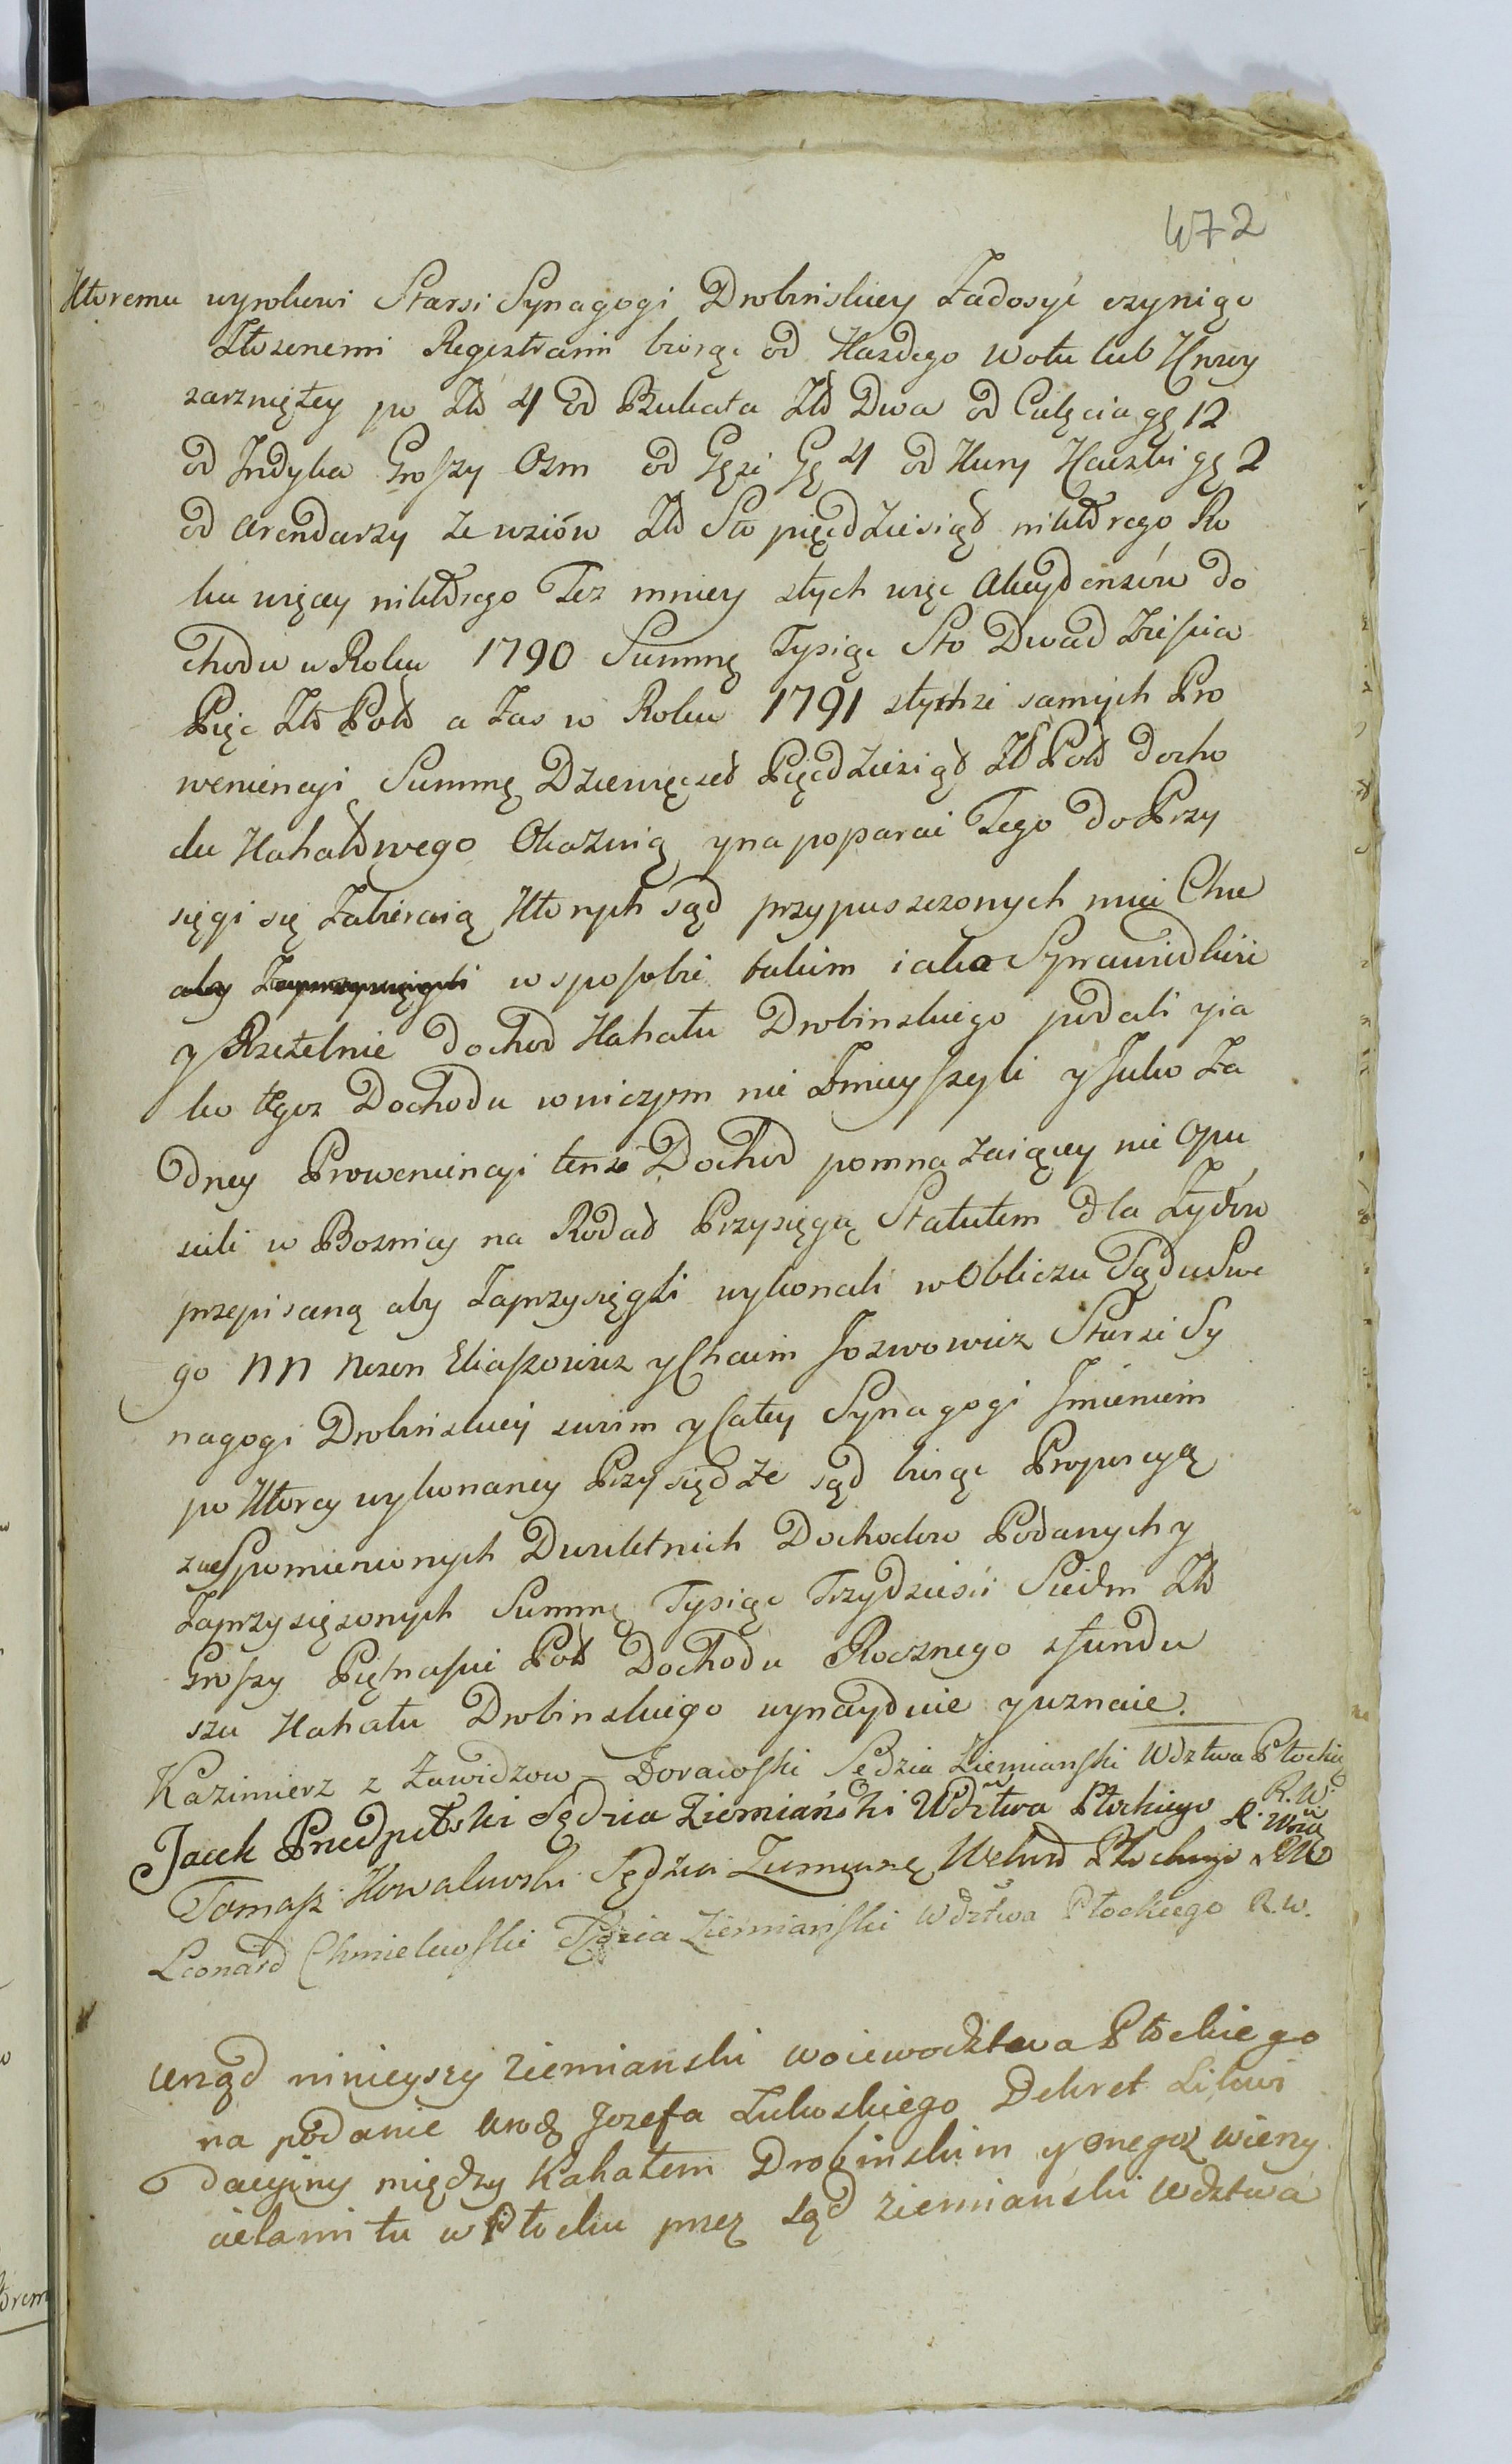 472
Ktoremu wyrokowi Starsi Synagogi Drobinskiey Zadosyć czyniąc
Złozonemi Regestrami biorąc od Kazdego wołu lub Krowy
zarzniętey po Zł 4 od Bukata Zł Dwa od Cielęcia gę 12
od Jndyka Groszy Osm od Gęsi Gę 4 od Kury Kaczki gę 2
od Arendarzy ze wsiów Zł Sto pięcdziesiąt niektorego Ro
ku więcy niektorego Tez mniey z tych więc Akcydensów do
chodu w Roku 1790 Summę Tysiąc Sto Dwadziescia
Pięc Zł Pol a Zas w Roku 1791 z tychze samych Pro
weniencyi Summę Dziewięcset Pięcdziesiąt Zł Pol docho
du Kahałowego Okazuią y na poparcie Tego do Przy
sięgi się Zabieraią Ktorych sąd przypuszczonych miec Chce
aby w sposobie takim iako Sprawiedliwie
y Rzetelnie dochod Kahału Drobinskiego podali y ia
ko tegoz Dochodu w niczym nie Zmieyszyli y Jako Za
dney Proweniencyi tenze Dochod pomnazaiącey nie Opu
scili w Boznicy na Rodał Przysięgą Statutem dla Zydow
przepisaną aby Zaprzysięgli wykonali w Obliczu Sądu Swe
go NN Nosen Eliaszowicz y Chaim Jozwowicz Starsi Sy
nagogi Drobinskiey swoim y Całey Synagogi Jmieniem
po Ktorey wykonaney Przysiędze sąd biorąc Proporcyą
zwspomnionych Dwuletnich Dochodow Podanych y
Zaprzysięzonych Summę Tysiąc Trzydziesci Siedm Zł
Groszy Piętnascie Pol Dochodu Rocznego z fundu
szu Kahału Drobinskiego wynayduie y uznaie.
Kazimierz z Zawidzow Sędzia Ziemianski Wdztwa Płockieg
R.W.
Jacek Sędzia Ziemiański Wdztwa Płockiego R.
Tomasz Kowalewski Sędzia Płockiego RW
Leonard Chmielewski Sędzia Ziemianski Wdztwa Płockiego R.W.
Urząd ninieyszy Ziemianski woiewodztwa Płockiego
na podanie Uro Jozefa Zukoskiego Dekret Likwi
dacyiny między Kahałem Drobinskim y onegoz wierzy
cielami tu w Płocku przez sąd ziemianski Wdztwa